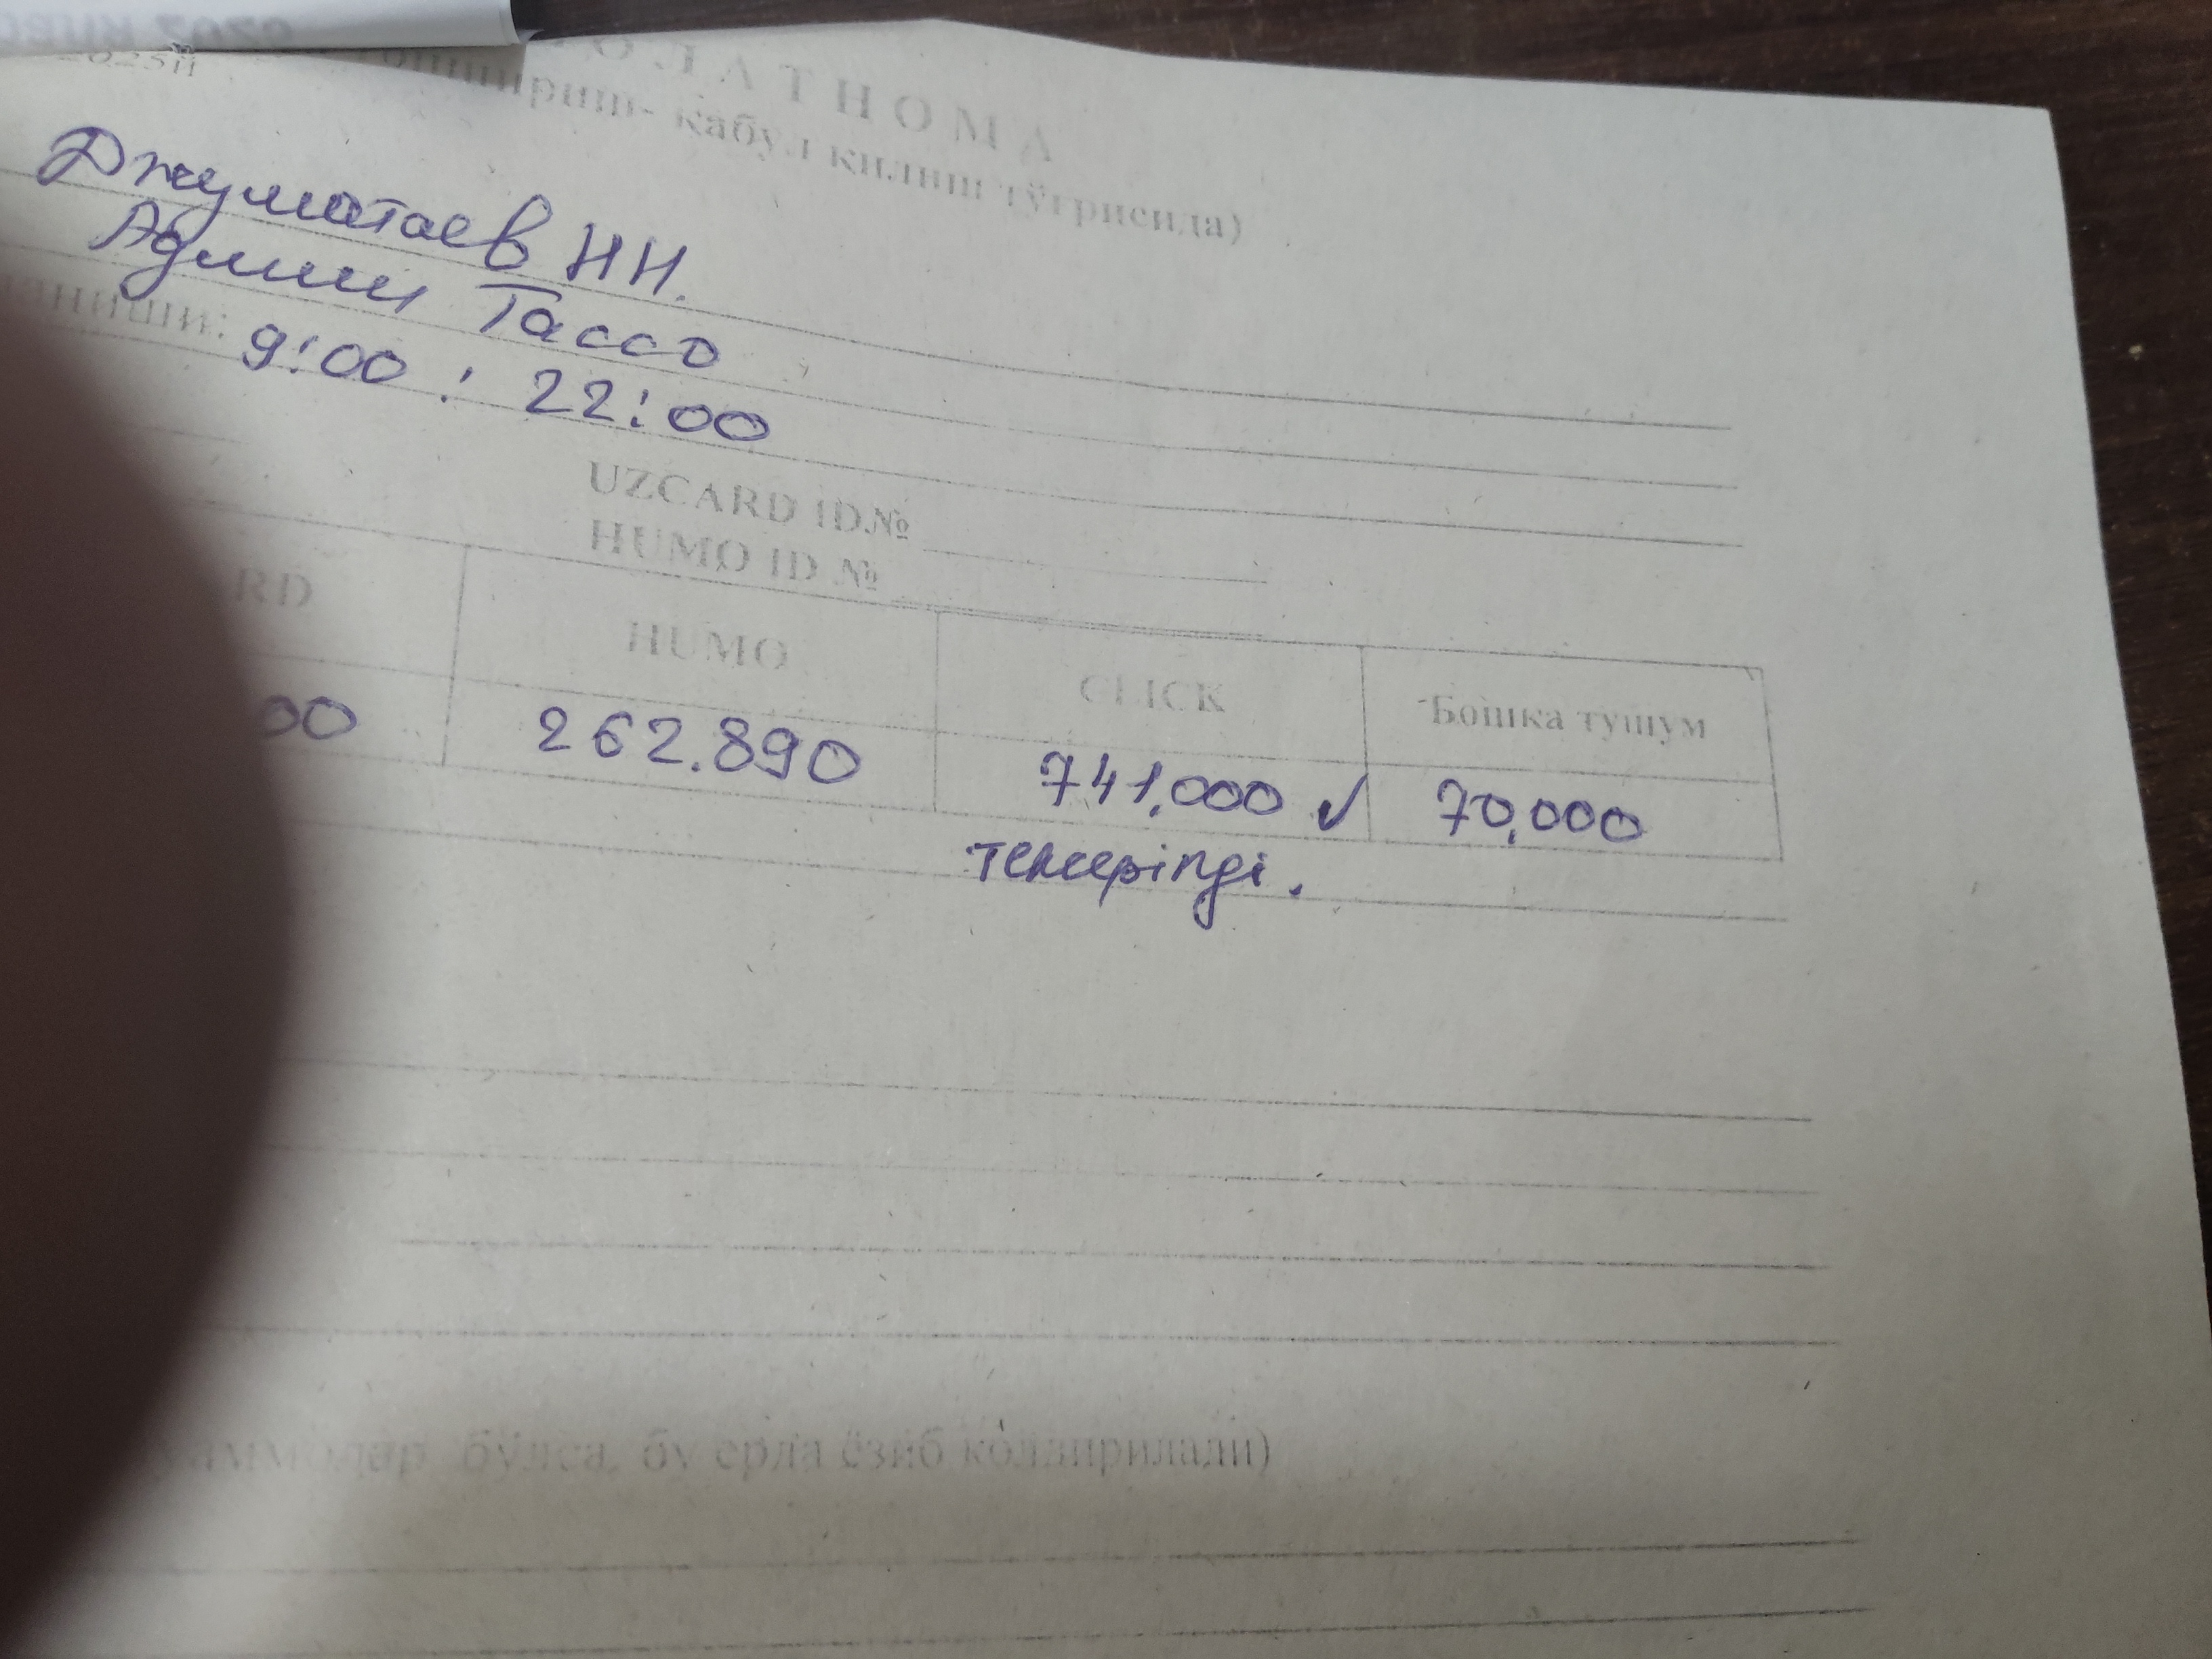 2025й
ОЛАТНОМА
ришириш- қабул қилиш тўғрисида)
Джуматаев НН.
Админ Тассо
ниши: 9:00 : 22:00
UZCARD ID№
HUMO ID №
RD HUMO CLICK Бошка тушум
00 262.890 741,000 ✓ 70,000
текcepiпgi.
аммолар бўлса, бу ерда ёзиб колдирилади)